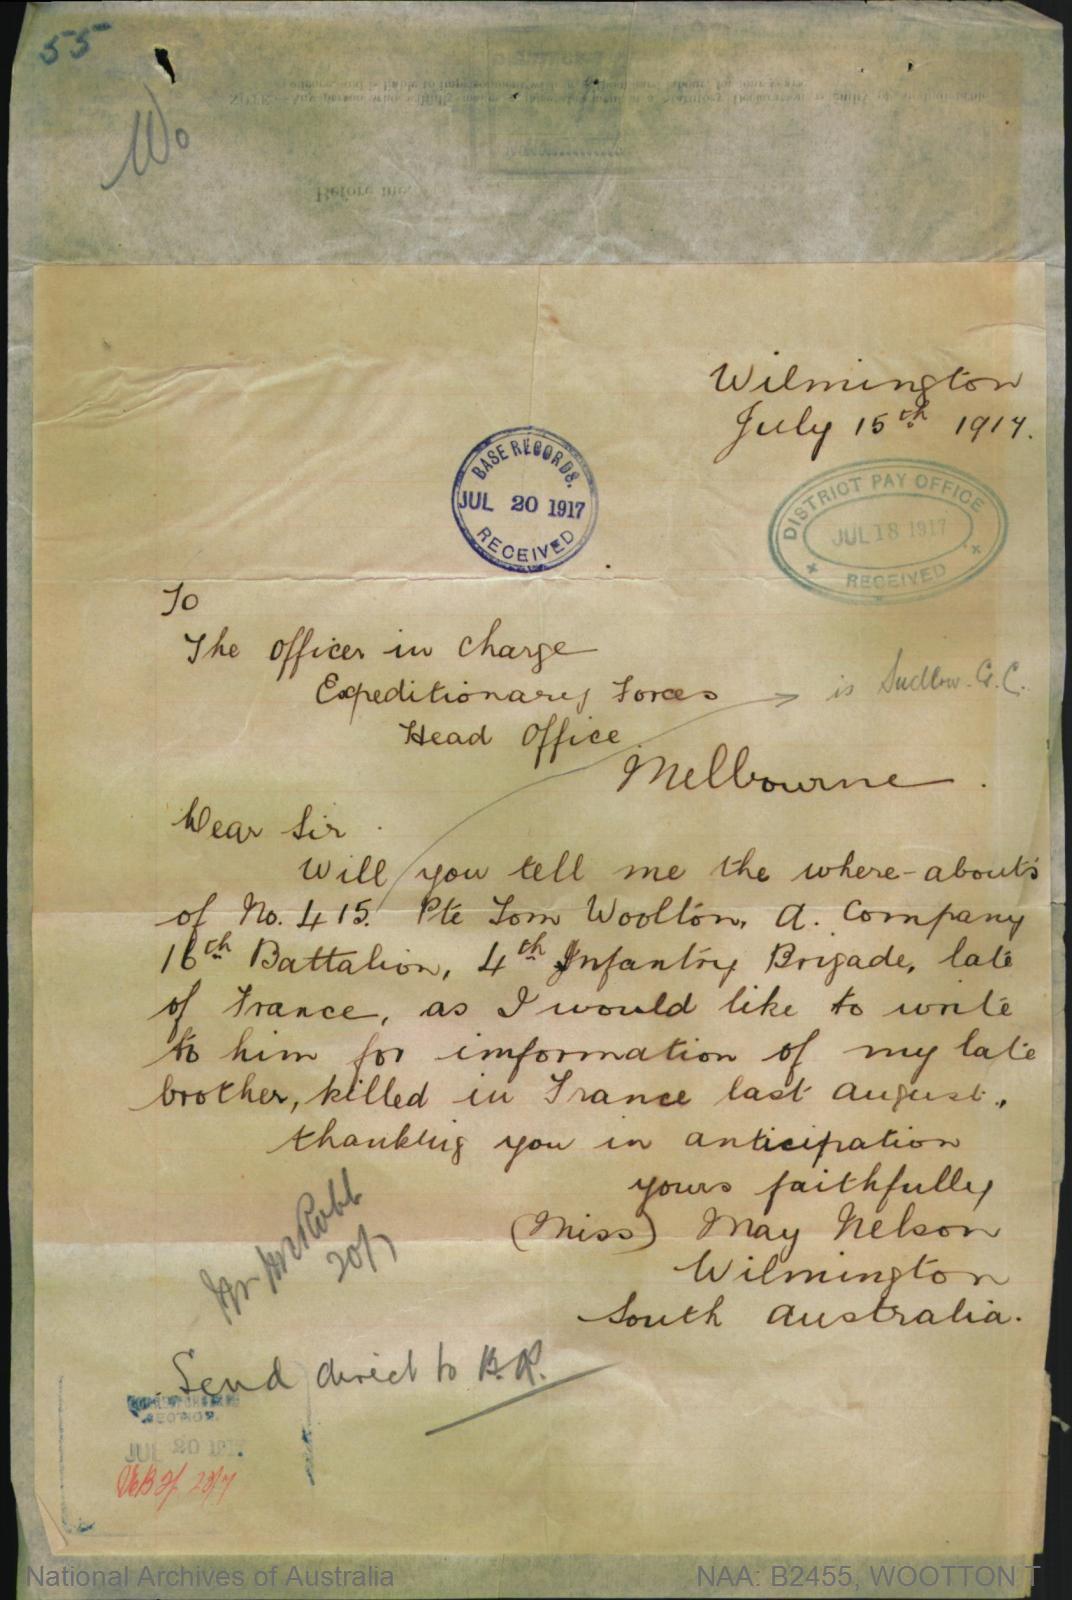 55
Wo
Before me,
Wilmington
July 15th 1917.
BASE RECORDS.
JUL 20 1917
RECEIVED
DISTRICT PAY OFFICE
JUL 18 1917
RECEIVED
To
The Officer in Charge
Expeditionary Forces
is Sudlow. G. C.
Head Office
Melbourne.
Dear Sir.
Will you tell me the where-abouts
of No. 415. Pte Tom Woolton, A. Company
16th Battalion, 4th Infantry Brigade, late
of France, as I would like to write
to him for imformation of my late
brother, killed in France last August.,
thanking you in anticipation
yours faithfully
(Miss) May Nelson
Wilmington
South Australia.
20/7
Send direct to B.R.
SECTION.
JUL 20 1917
National Archives of Australia
NAA: B2455, WOOTTON T